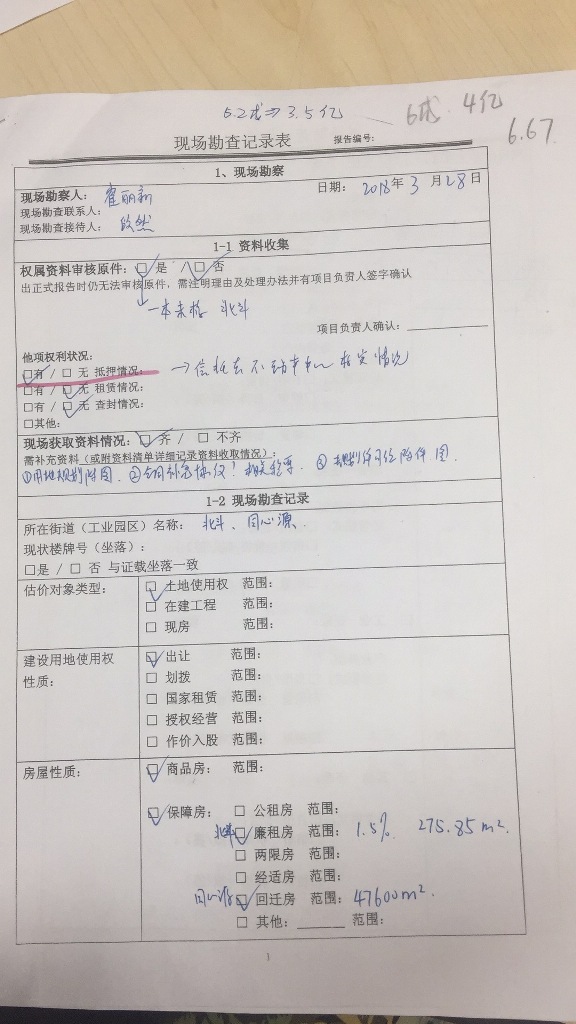 6.2成⇒3.5亿
6成 4亿
6.67
现场勘查记录表 报告编号:
1、现场勘察
现场勘察人: 霍丽新 日期: 2018年3月28日
现场勘查联系人:
现场勘查接待人: 段然
1-1 资料收集
权属资料审核原件: □ 是 / □ 否
出正式报告时仍无法审核原件,需注明理由及处理办法并有项目负责人签字确认
一本未抵 北斗
项目负责人确认:
他项权利状况:
□有 / □ 无 抵押情况: → 不动产中心 核实情况
□有 / □ 无 租赁情况:
□有 / □ 无 查封情况:
□其他:
现场获取资料情况: □ 齐 / □ 不齐
需补充资料(或附资料清单详细记录资料收取情况):
①用地规划附图. ② 补充协议! ③ 规划许可证附件 图.
1-2 现场勘查记录
所在街道(工业园区)名称: 北斗、同心源.
现状楼牌号(坐落):
□是 / □ 否 与证载坐落一致
估价对象类型: □ 土地使用权 范围:
□ 在建工程 范围:
□ 现房 范围:
建设用地使用权性质: □ 出让 范围:
□ 划拨 范围:
□ 国家租赁 范围:
□ 授权经营 范围:
□ 作价入股 范围:
房屋性质: □ 商品房: 范围:
□ 保障房: □ 公租房 范围:
北斗 □ 廉租房 范围: 1.5% 275.85m².
□ 两限房 范围:
□ 经适房 范围:
同心源 □ 回迁房 范围: 47600m².
□ 其他: 范围:
1